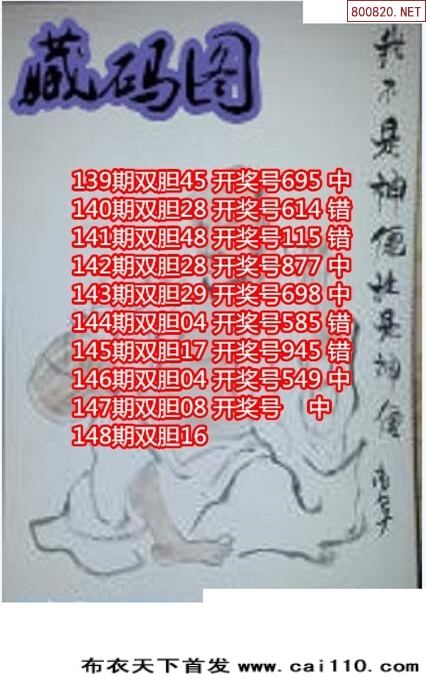 800820.NET
藏码图
我不是神仙
139期双胆45 开奖号695 中
140期双胆28 开奖号614 错
141期双胆48 开奖号115 错
142期双胆28 开奖号877 中
143期双胆29 开奖号698 中
144期双胆04 开奖号585 错
145期双胆17 开奖号945 错
146期双胆04 开奖号549 中
147期双胆08 开奖号 中
148期双胆16
布衣天下首发 www.cai110.com